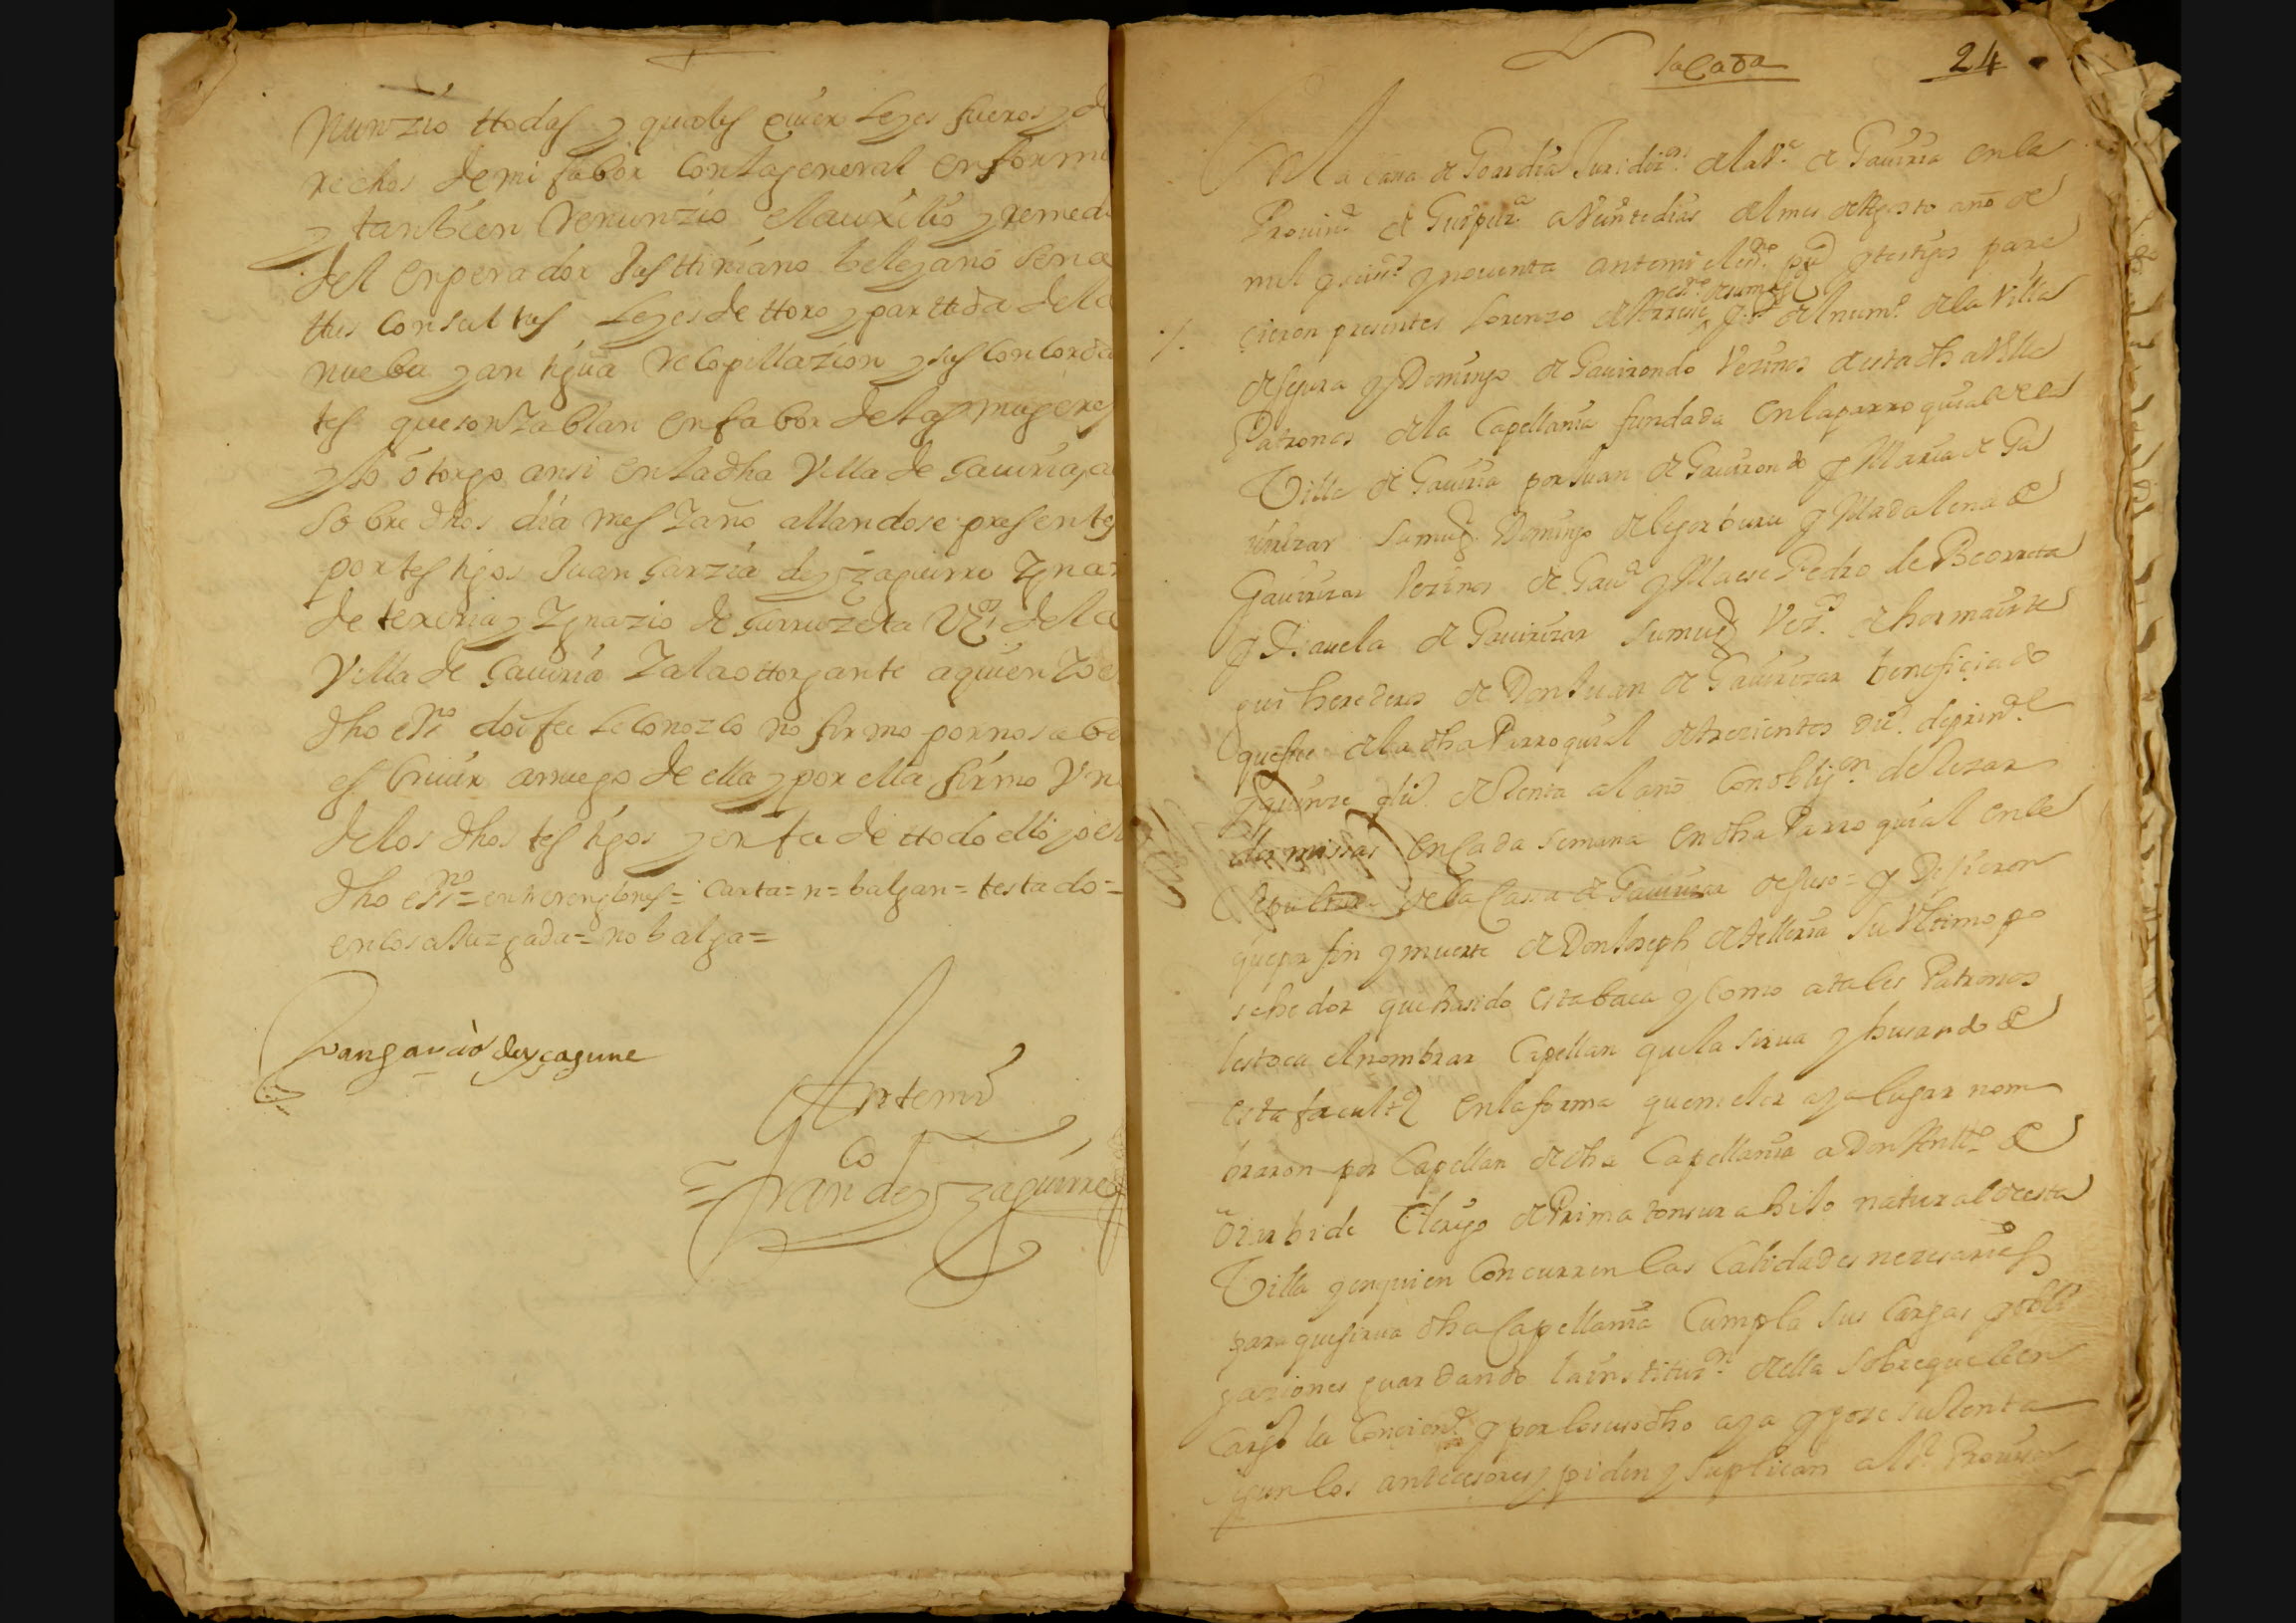 Nunzio ttodas y quales quier Leyes fueros y de
rechos de mi fabor con la general en forma
y tanbien Renunzio el auxilio y remedi
del enperador Justtiniano belejano sena
ttus consultus Leyes de ttoro y partida de la
nueba y antigua Recopillazion y sus concorda
tes que son y ablan en fabor de las mugeres
y lo otorgo ansi en la dha Villa de Gauiria, a
sobre dhos dia mes y año allandose presentes
por testigos Juan Garzia de yzaguirre Ygnaz
de texeria y Ygnazio de Gurruzeta Vzos de la
Villa de Gauiria y a la ottorgante a quien yo e
dho essno doi fee le conozco no firmo por no sabe
es criuir a rruego de ella y por ella firmo Un
de los dhos testigos y en fe de ttodo ello yo el
dho essno = entre renglones = Carta = n = balgan = testado =
no balga =
Juan garcia de yçaguirre
Ante mi
Franco de yzaguirre
sacada 24
En la casa de Juridizon de la Va de Gauiria en la
Prouina de Guipuza a Veinte dias del mes de Agosto año de
mil y seisos y nouenta ante mi el essno pu y testigos pare
cieron presentes Lorenzo de Arrese del numo de la Villa
de Segura y Domingo de Gauirondo Vezinos de esta dha Villa
Patronos de la Capellania fundada en la parroquial de la
Villa de Gauiria por Juan de Gauirondo y Maria de Ga
uirizar su mugr Domingo de legorburu y Madalena de
Gauirizar Vezinos de Gaua y Maese Pedro de Beorreta
y de Gauirizar su mugr Vezs de hormaiste
gui herederos de Don Juan de Gauirizar beneficiado
que fue de la dha Parroquial de trezientos dus de prinl
y quinze de Renta al año con obligon de Rezar
dos missas en cada semana en dha Parroquial en la
sepultura de la Casa de Gauirizar de suso = y Dixeron
que por fin y muerte de Don Joseph de telleria su Vltimo po
sehedor que ha sido esta baca y como a tales Patronos
les toca el nombrar Capellan que la sirua y husando de
esta facultd en la forma que mejor aya lugar nom
braron por Capellan de dha Capellania a Don Antto de
Oiarbide Clerigo de Prima tonsura hijo natural de esta
Villa y en quien concurren las calidades nezesarias
para que sirua dha Capellania Cumpla sus cargas y obli
gaziones guardando la instituzn de ella sobre que le en
cargo la Concienca y por lo suso dho aya y goze su Renta
segun los antecesores y piden y suplican al Sr Prouisor